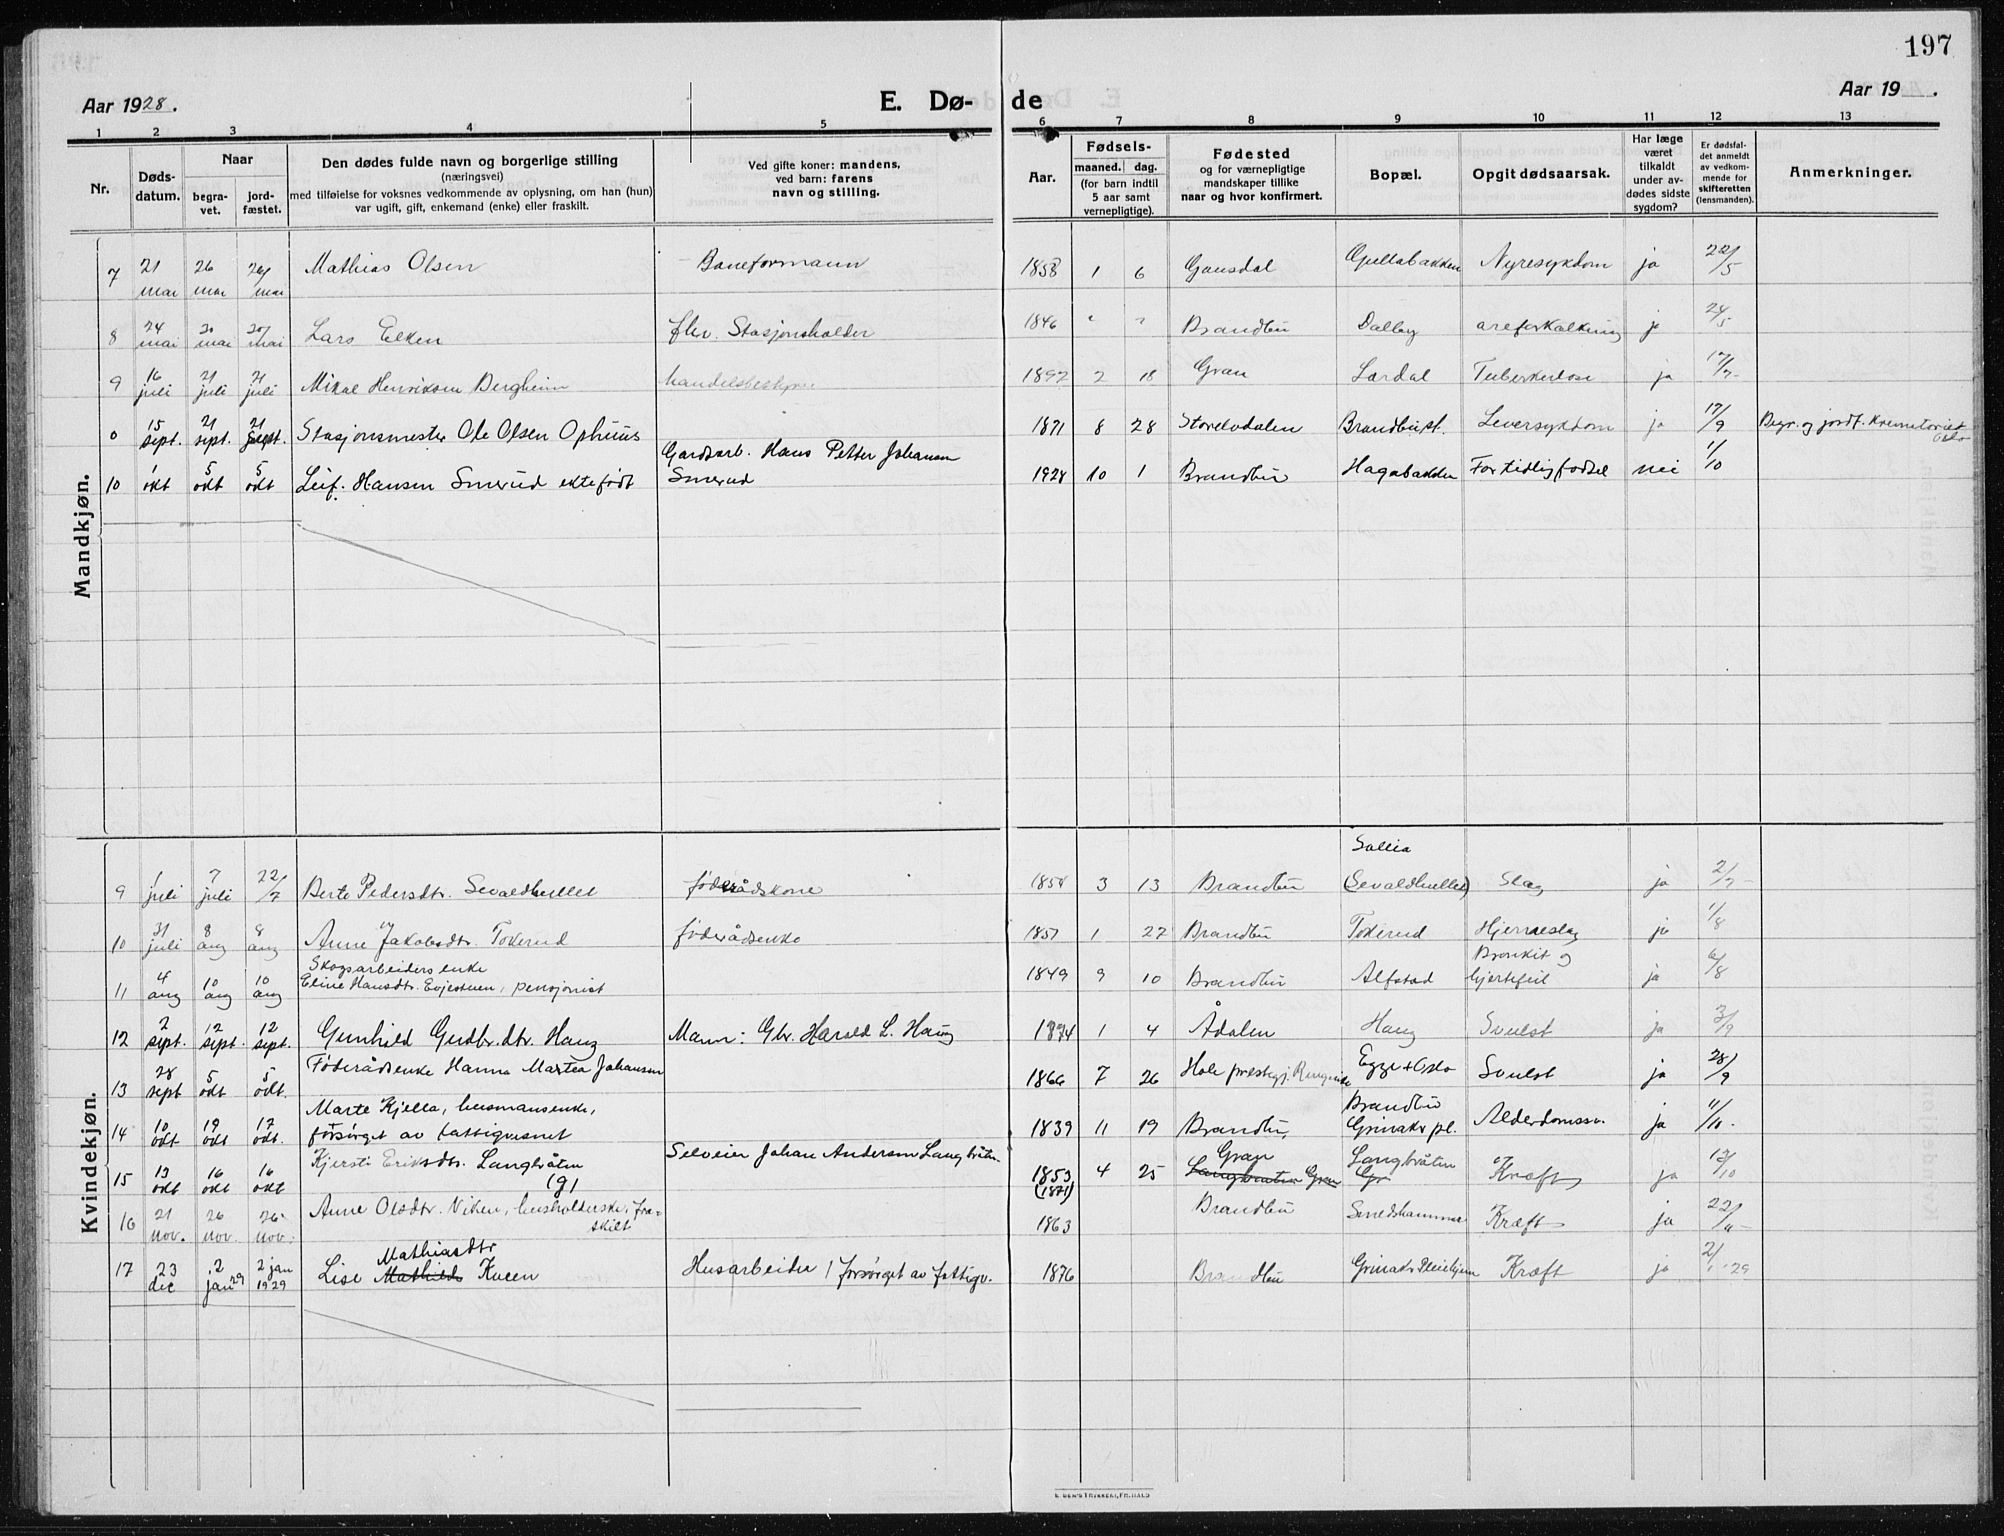 197
Aar 1928. E. Dø- de Aar 19 .
1 2 3 4 5 6 7 8 9 10 11 12 13
Nr. Døds-datum. Naar begra-vet. jord-fæstet. Den dødes fulde navn og borgerlige stilling (næringsvei) med tilføielse for voksnes vedkommende av oplysning, om han (hun) var ugift, gift, enkemand (enke) eller fraskilt. Ved gifte koner: mandens, ved barn: farens navn og stilling. Aar. Fødsels- maaned. dag. (for barn indtil 5 aar samt vernepligtige). Fødested og for værnepligtige mandskaper tillike naar og hvor konfirmert. Bopæl. Opgit dødsaarsak. Har læge været tilkaldt under av-dødes sidste sygdom? Er dødsfal-det anmeldt av vedkom-mende for skifteretten (lensmanden). Anmerkninger.
Mandkjøn.
7 21 mai 26 mai 26/ mai Mathias Olsen Baneformann 1858 1 6 Gausdal Gullabakken Nyresykdom ja 22/5
8 24 mai 30 mai 30/ mai Lars Elken fhv. Stasjonsholder 1846 " " Brandbu Dalby areforkalkning ja 24/5
9 16 juli 21 juli 21 juli Mikal Henriksen Bergheim handelsbestyrer 1892 2 18 Gran Lardal Tuberkulose ja 17/7
0 15 sept. 21 sept. 21 sept. Stasjonsmester Ole Olsen Ophuus 1871 8 28 Storelvdalen Brandbu st. Leversykdom ja 17/9 Begr. og jordf. Krematoriet Oslo
10 1 okt 5 okt 5 okt Leif Hansen Smerud ektefødt Gardsarb. Hans Petter Johansen Smerud 1928 10 1 Brandbu Hagabakken For tidlig fødsel nei 1/10
Kvindekjøn.
9 1 juli 7 juli 22/7 Berte Pedersdtr. Sevaldhullet føderådskone 1854 3 13 Brandbu Sollia (Sevaldhullet) Slag ja 2/7
10 31 juli 8 aug 8 aug Anne Jakobsdtr. Tokerud føderådsenke 1857 1 27 Brandbu Tokerud Hjerneslag ja 1/8
11 4 aug 10 aug 10 aug Skogsarbeiders enke Eline Hansdtr. Evjestuen, pensjonist 1849 9 10 Brandbu Alfstad Bronkit og hjertefeil ja 6/8
12 2 sept. 12 sept. 12 sept. Gunhild Gudbr.dtr. Haug Mann: Gbr. Harald L. Haug 1874 1 4 Ådalen Haug Svulst ja 3/9
13 28 sept 5 okt 5 okt. Føderådsenke Hanna Martea Johansen 1866 7 26 Hole prestegj. Ringerike Egge + Oslo Svulst ja 28/9
14 10 okt 19 okt 17 okt. Marte Kjella, husmansenke, forsørget av fattigvesnet 1839 11 19 Brandbu, Brandbu Grinaker pl. Alderdomssv. ja 11/10.
15 13 okt 16 okt 16 okt Kjersti Eriksdtr. Langbråten (g) Selveier Johan Andersen Langbråten 1853 (1871) 4 25 Gran Langbråten Gran Langbråten Gr Kræft ja 13/10
16 21 nov. 26 nov 26 nov. Anne Olsdtr. Viken, husholderske, fra-skilt 1863 Brandbu Smedshammer Kræft ja 22/11
17 23 dec 2 jan 29 2 jan 1929 Lise Mathiasdtr Mathilde Kueen Husarbeide / forsørget av fattigv. 1876 Brandbu Grinaker Pleiehjem Kræft ja 2/1 '29